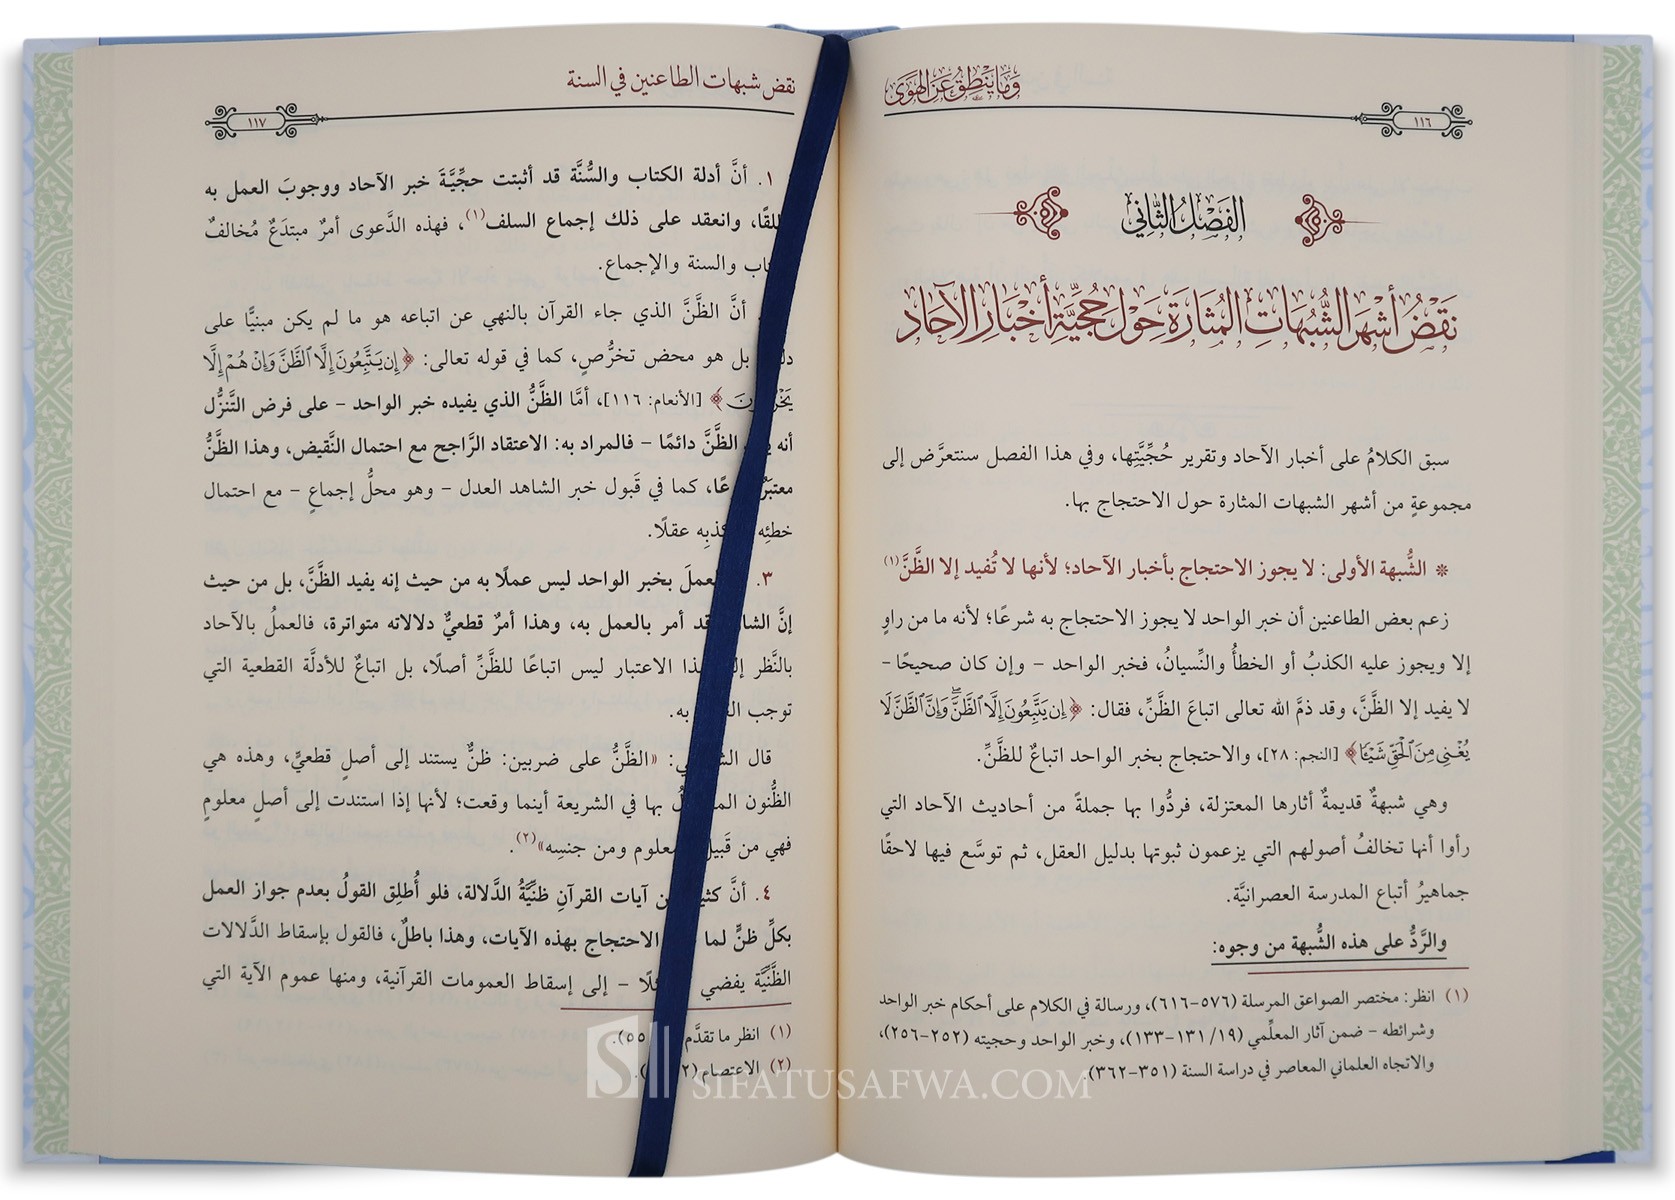 وَمَا يَنْطِقُ عَنِ الْهَوَى
١١٦
الفَصْلُ الثَّانِي
نَقْضُ أَشْهَرِ الشُّبُهَاتِ المُثَارَةِ حَوْلَ حُجِّيَّةِ أَخْبَارِ الآحَادِ
سبق الكلامُ على أخبار الآحاد وتقرير حُجِّيَّتِها، وفي هذا الفصل سنتعرَّض إلى
مجموعةٍ من أشهر الشبهات المثارة حول الاحتجاج بها.
* الشُّبهة الأولى: لا يجوز الاحتجاج بأخبار الآحاد؛ لأنها لا تُفيد إلا الظَّنَّ(١)
زعم بعض الطاعنين أن خبر الواحد لا يجوز الاحتجاج به شرعًا؛ لأنه ما من راوٍ
إلا ويجوز عليه الكذبُ أو الخطأُ والنِّسيانُ، فخبر الواحد – وإن كان صحيحًا –
لا يفيد إلا الظَّنَّ، وقد ذمَّ الله تعالى اتباعَ الظَّنِّ، فقال: ﴿إِن يَتَّبِعُونَ إِلَّا ٱلظَّنَّۖ وَإِنَّ ٱلظَّنَّ لَا
يُغْنِي مِنَ ٱلْحَقِّ شَيْـًٔا﴾ [النجم: ٢٨]، والاحتجاج بخبر الواحد اتباعٌ للظَّنِّ.
وهي شبهةٌ قديمةٌ أثارها المعتزلة، فردُّوا بها جملةً من أحاديث الآحاد التي
رأوا أنها تخالفُ أصولهم التي يزعمون ثبوتها بدليل العقل، ثم توسَّع فيها لاحقًا
جماهيرُ أتباع المدرسة العصرانيَّة.
والرَّدُّ على هذه الشُّبهة من وجوه:
(١) انظر: مختصر الصواعق المرسلة (٥٧٦-٦١٦)، ورسالة في الكلام على أحكام خبر الواحد
وشرائطه – ضمن آثار المعلِّمي (١٣١/١٩-١٣٣)، وخبر الواحد وحجيته (٢٥٢-٢٥٦)،
والاتجاه العلماني المعاصر في دراسة السنة (٣٥١-٣٦٢).
نقض شبهات الطاعنين في السنة
١١٧
١. أنَّ أدلة الكتاب والسُّنَّة قد أثبتت حجِّيَّةَ خبر الآحاد ووجوبَ العمل به
وانعقد على ذلك إجماع السلف(١)، فهذه الدَّعوى أمرٌ مبتدَعٌ مُخالفٌ
والسنة والإجماع.
أنَّ الظَّنَّ الذي جاء القرآن بالنهي عن اتباعه هو ما لم يكن مبنيًّا على
بل هو محض تخرُّصٍ، كما في قوله تعالى: ﴿إِن يَتَّبِعُونَ إِلَّا ٱلظَّنَّ وَإِنْ هُمْ إِلَّا
﴾ [الأنعام: ١١٦]، أمَّا الظَّنُّ الذي يفيده خبر الواحد – على فرض التَّنزُّل
أنه الظَّنَّ دائمًا – فالمراد به: الاعتقاد الرَّاجح مع احتمال النَّقيض، وهذا الظَّنُّ
كما في قَبول خبر الشاهد العدل – وهو محلُّ إجماعٍ – مع احتمال
خطئِه عقلًا.
٣. العملَ بخبر الواحد ليس عملًا به من حيث إنه يفيد الظَّنَّ، بل من حيث
إنَّ قد أمر بالعمل به، وهذا أمرٌ قطعيٌّ دلالاته متواترة، فالعملُ بالآحاد
بالنَّظر الاعتبار ليس اتباعًا للظَّنِّ أصلًا، بل اتباعٌ للأدلَّة القطعية التي
توجب به.
قال «الظَّنُّ على ضربين: ظنٌّ يستند إلى أصلٍ قطعيٍّ، وهذه هي
الظُّنون بها في الشريعة أينما وقعت؛ لأنها إذا استندت إلى أصلٍ معلومٍ
فهي من قَبيل ومن جنسِه»(٢).
٤. أنَّ آيات القرآنِ ظنِّيَّةُ الدَّلالة، فلو أُطلِق القولُ بعدم جواز العمل
بكلِّ ظنٍّ لما الاحتجاج بهذه الآيات، وهذا باطلٌ، فالقول بإسقاط الدَّلالات
الظَّنِّيَّة يفضي – إلى إسقاط العمومات القرآنية، ومنها عموم الآية التي
(١) انظر ما تقدَّم
(٢) الاعتصام
SIFATUSAFWA.COM